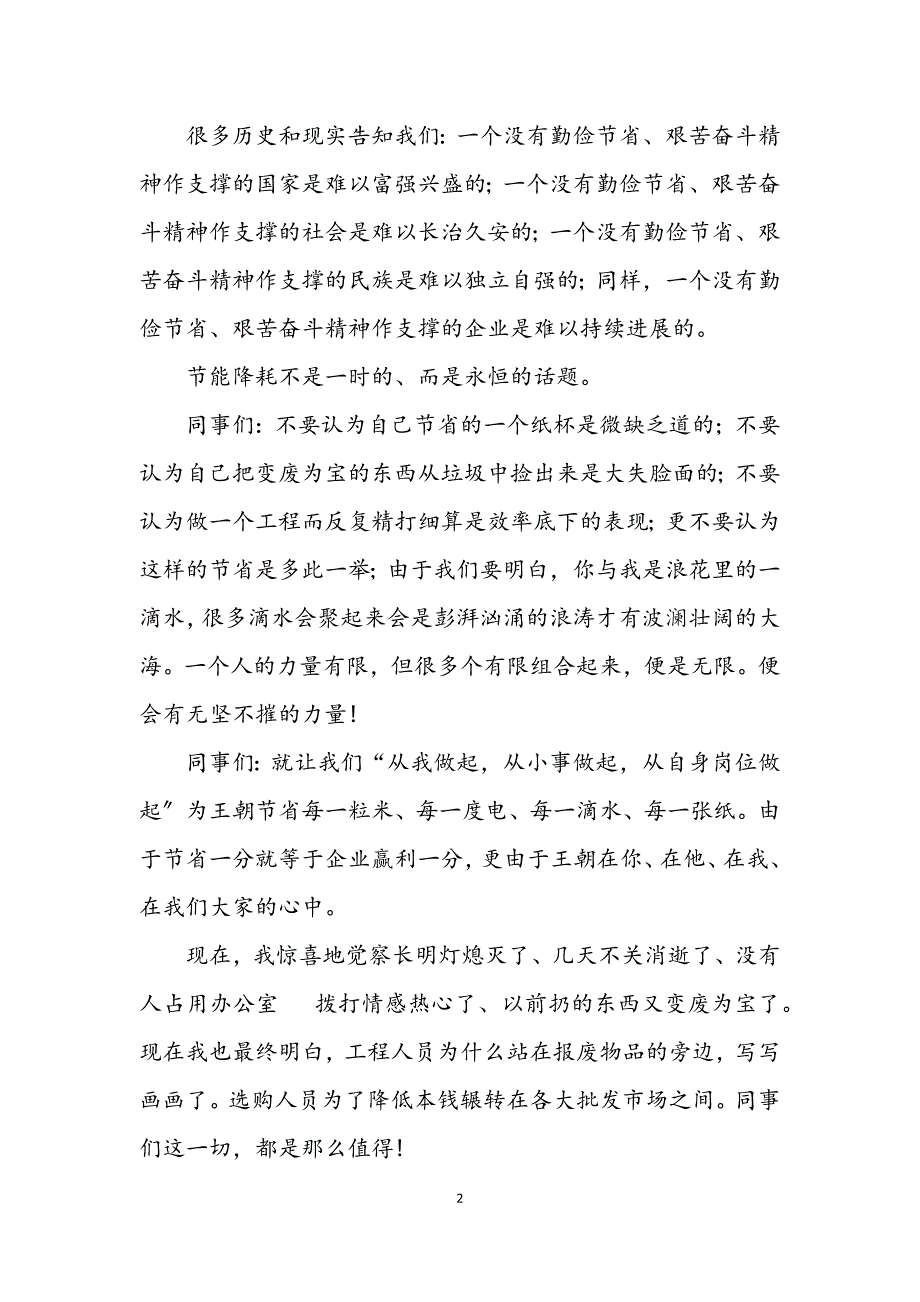 很多历史和现实告知我们：一个没有勤俭节省、艰苦奋斗精
神作支撑的国家是难以富强兴盛的；一个没有勤俭节省、艰苦奋
斗精神作支撑的社会是难以长治久安的；一个没有勤俭节省、艰
苦奋斗精神作支撑的民族是难以独立自强的；同样，一个没有勤
俭节省、艰苦奋斗精神作支撑的企业是难以持续进展的。
节能降耗不是一时的、而是永恒的话题。
同事们：不要认为自己节省的一个纸杯是微缺乏道的；不要
认为自己把变废为宝的东西从垃圾中捡出来是大失脸面的；不要
认为做一个工程而反复精打细算是效率底下的表现；更不要认为
这样的节省是多此一举；由于我们要明白，你与我是浪花里的一
滴水，很多滴水会聚起来会是彭湃汹涌的浪涛才有波澜壮阔的大
海。一个人的力量有限，但很多个有限组合起来，便是无限。便
会有无坚不摧的力量！
同事们：就让我们“从我做起，从小事做起，从自身岗位做
起〞为王朝节省每一粒米、每一度电、每一滴水、每一张纸。由
于节省一分就等于企业赢利一分，更由于王朝在你、在他、在我、
在我们大家的心中。
现在，我惊喜地觉察长明灯熄灭了、几天不关消逝了、没有
人占用办公室　拨打情感热心了、以前扔的东西又变废为宝了。
现在我也最终明白，工程人员为什么站在报废物品的旁边，写写
画画了。选购人员为了降低本钱辗转在各大批发市场之间。同事
们这一切，都是那么值得！
2